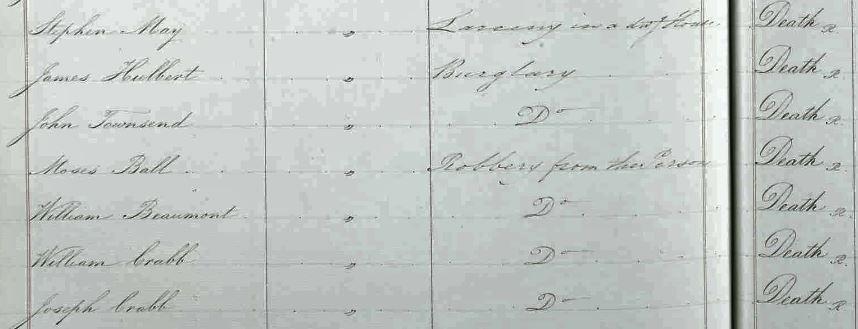 Stephen May " Larceny in a dwg House Death R.
James Hulbert " Burglary Death R.
John Townsend " Do Death R.
Moses Ball " Robbery from the Person Death R.
William Beaumont " Do Death R.
William Crabb " Do Death R.
Joseph Crabb " Do Death R.